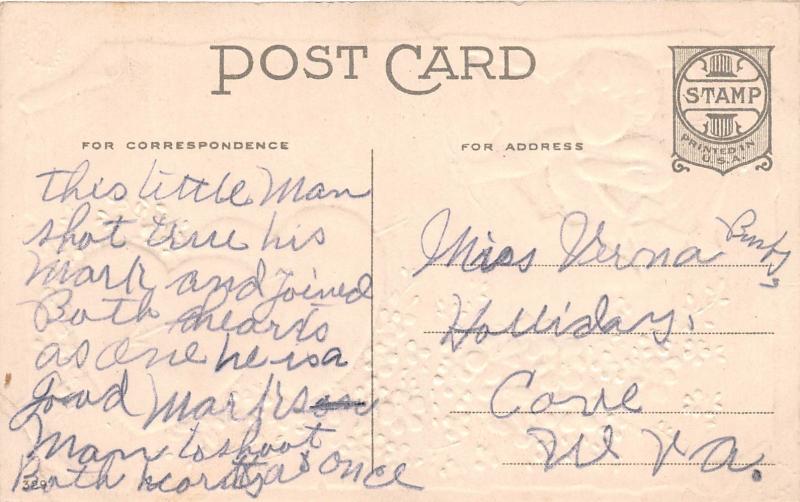 POST CARD
STAMP
PRINTED IN
U.S.A.
FOR CORRESPONDENCE
FOR ADDRESS
this little Man
shot true his
Mark and Joined
Both hearts
as one he is a
good Marks
Man to shoot
Both at once
Miss Verna
Holliday,
Cove
W Va.